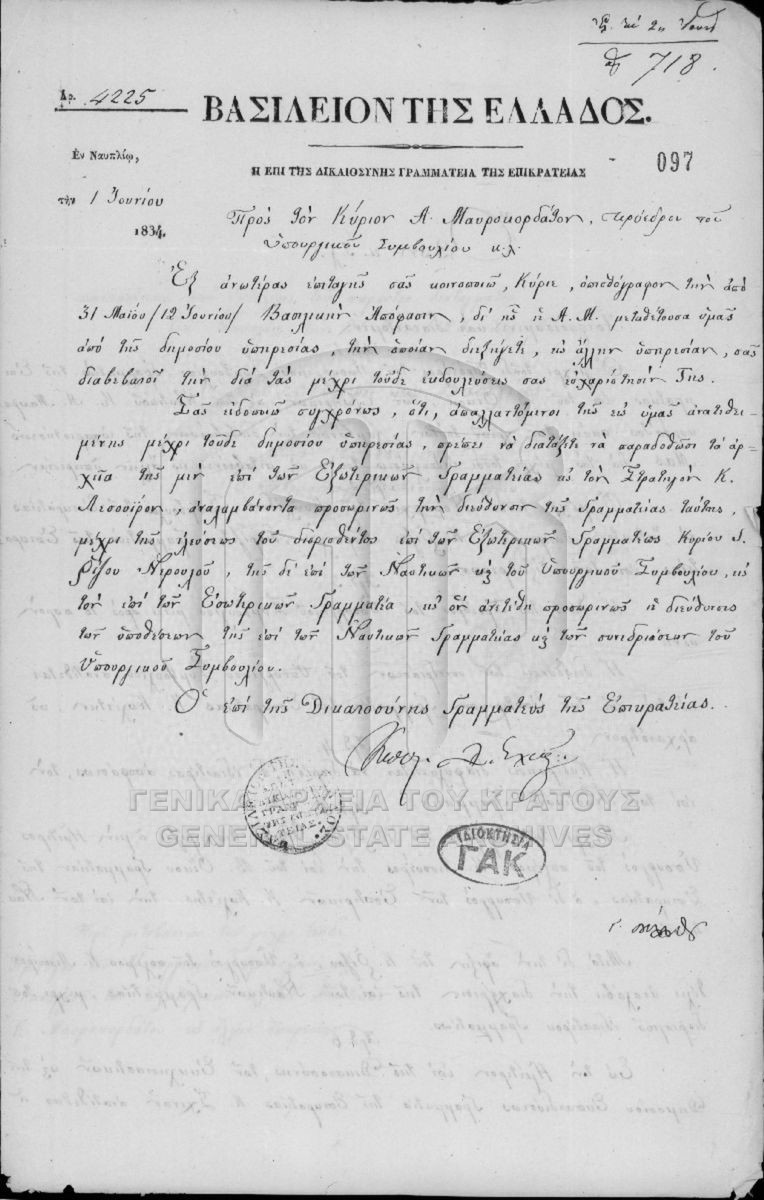 718.
Αρ. 4225
ΒΑΣΙΛΕΙΟΝ ΤΗΣ ΕΛΛΑΔΟΣ.
Εν Ναυπλίῳ,
Η ΕΠΙ ΤΗΣ ΔΙΚΑΙΟΣΥΝΗΣ ΓΡΑΜΜΑΤΕΙΑ ΤΗΣ ΕΠΙΚΡΑΤΕΙΑΣ
097
τὴν 1 Ἰουνίου
1834.
Πρὸς τὸν Κύριον Α. Μαυροκορδάτον, πρόεδρον τοῦ
Ὑπουργικοῦ Συμβουλίου κ.λ.
Ἐξ ἀνωτέρας ἐπιταγῆς σᾶς κοινοποιῶ, Κύριε, ὀπισθόγραφον τὴν ἀπὸ
31 Μαΐου /12 Ἰουνίου/ Βασιλικὴν Ἀπόφασιν, δι' ἧς ἡ Α.Μ. μεταθέτουσα ὑμᾶς
ἀπὸ τῆς δημοσίου ὑπηρεσίας, τὴν ὁποίαν διεξήγετε, εἰς ἄλλην ὑπηρεσίαν, σᾶς
διαβεβαιοῖ τὴν διὰ τὰς μέχρι τοῦδε ἐκδουλεύσεις σας εὐχαρίστησίν Της.
Σᾶς εἰδοποιῶ συγχρόνως, ὅτι, ἀπαλλαττόμενοι τῆς εἰς ὑμᾶς ἀνατεθει-
μένης μέχρι τοῦδε δημοσίου ὑπηρεσίας, πρέπει νὰ διατάξετε νὰ παραδοθῶσι τὰ ἀρ-
χεῖα τῆς μὲν ἐπὶ τῶν Ἐξωτερικῶν Γραμματείας εἰς τὸν Στρατηγὸν Κ.
Λεσουΐρον, ἀναλαμβάνοντα προσωρινῶς τὴν διεύθυνσιν τῆς Γραμματείας ταύτης,
μέχρι τῆς ἐλεύσεως τοῦ διορισθέντος ἐπὶ τῶν Ἐξωτερικῶν Γραμματέως Κυρίου Ι.
Ῥίζου Νερουλοῦ, τῆς δὲ ἐπὶ τῶν Ναυτικῶν καὶ τοῦ Ὑπουργικοῦ Συμβουλίου, εἰς
τὸν ἐπὶ τῶν Ἐσωτερικῶν Γραμματέα, εἰς ὃν ἀνετέθη προσωρινῶς ἡ διεύθυνσις
τῶν ὑποθέσεων τῆς ἐπὶ τῶν Ναυτικῶν Γραμματείας καὶ τῶν συνεδριάσεων τοῦ
Ὑπουργικοῦ Συμβουλίου.
Ὁ ἐπὶ τῆς Δικαιοσύνης Γραμματεὺς τῆς Ἐπικρατείας.
ΓΕΝΙΚΑ ΑΡΧΕΙΑ ΤΟΥ ΚΡΑΤΟΥΣ
GENERAL STATE ARCHIVES
ΙΔΙΟΚΤΗΣΙΑ
ΓΑΚ